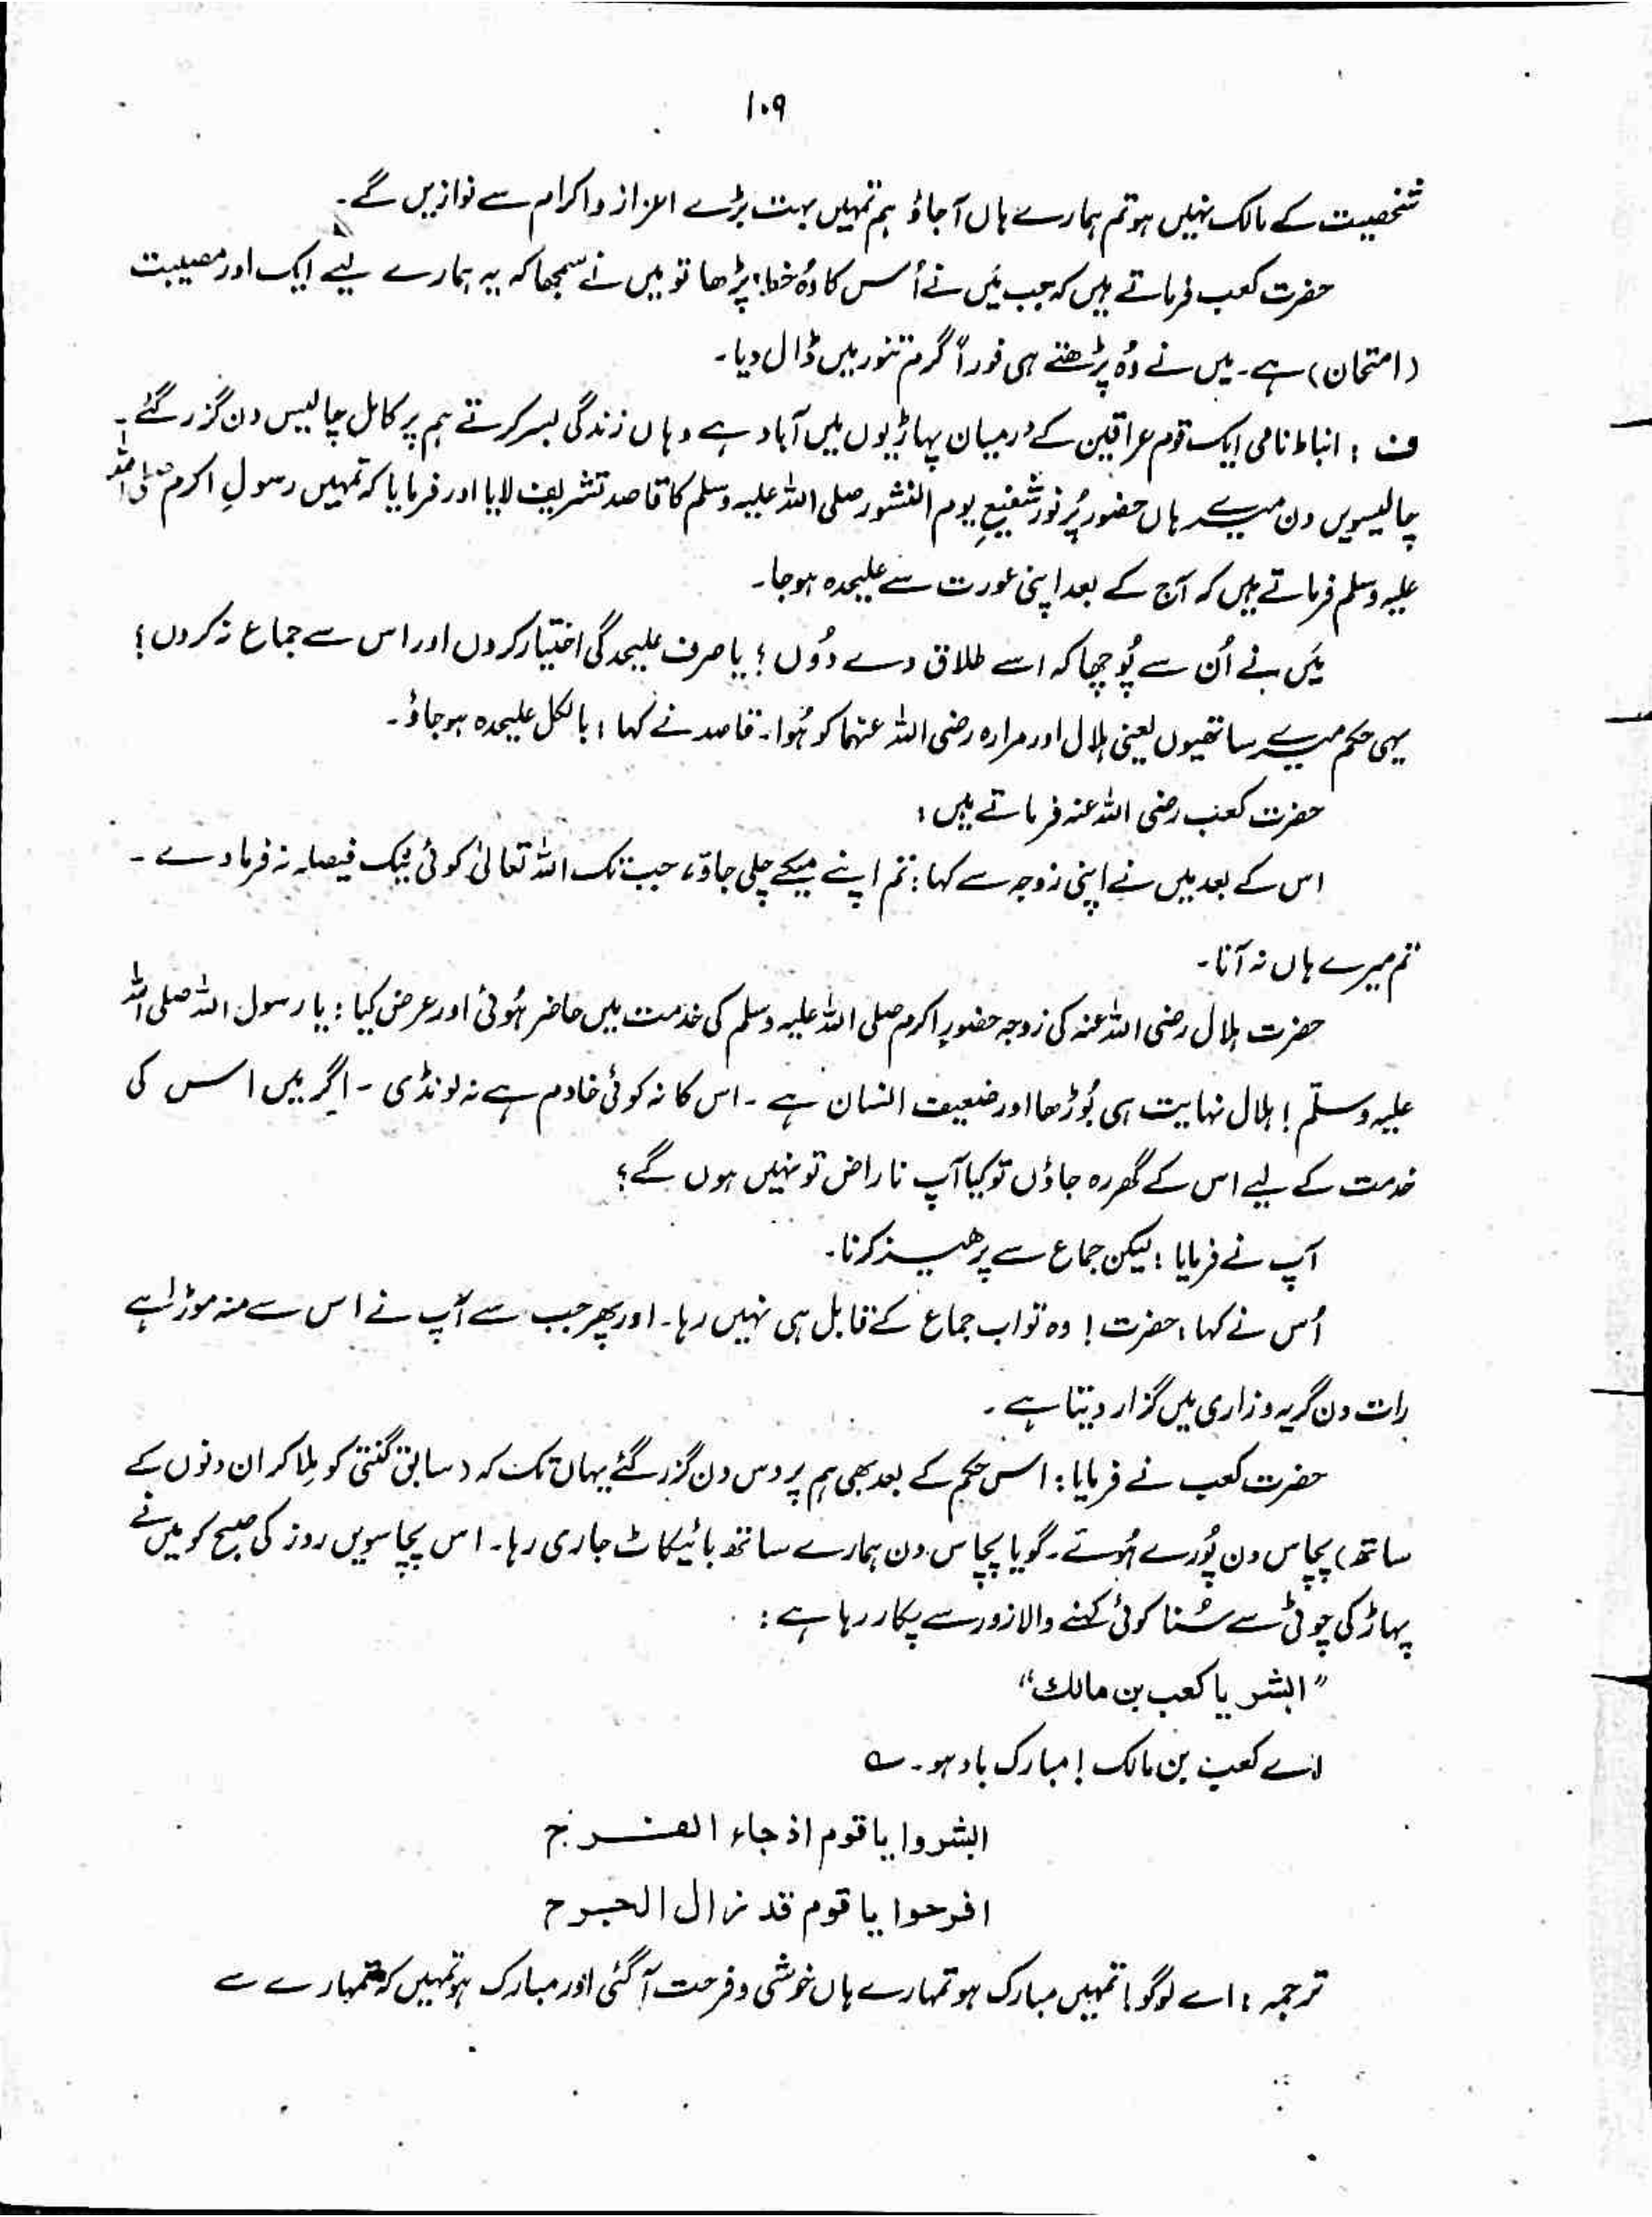 ۱۰۹
شخصیت کے مالک نہیں ہو تم ہمارے ہاں آجاؤ ہم تمہیں بہت بڑے اعزاز و اکرام سے نوازیں گے۔
حضرت کعب فرماتے ہیں کہ جب میَں نے اُس کا وُہ خط پڑھا تو میں نے سمجھا کہ یہ ہمارے لیے ایک اور مصیبت
(امتحان) ہے۔ میں نے وُہ پڑھتے ہی فوراً گرم تنور میں ڈال دیا۔
ف : انباط نامی ایک قوم عراقین کے درمیان پہاڑیوں میں آباد ہے وہاں زندگی بسر کرتے ہم پر کامل چالیس دن گزر گئے۔
چالیسویں دن میرے ہاں حضور پُر نور شفیعِ یوم النشور صلی اللہ علیہ وسلم کا قاصد تشریف لایا اور فرمایا کہ تمہیں رسولِ اکرم صلی اللہ
علیہ وسلم فرماتے ہیں کہ آج کے بعد اپنی عورت سے علیحدہ ہوجا۔
میَں نے اُن سے پُوچھا کہ اسے طلاق دے دُوں ؟ یا صرف علیحدگی اختیار کروں اور اس سے جماع نہ کروں ؟
یہی حکم میرے ساتھیوں یعنی ہلال اور مرارہ رضی اللہ عنہما کو ہُوا۔ قاصد نے کہا : بالکل علیحدہ ہوجاؤ۔
حضرت کعب رضی اللہ عنہ فرماتے ہیں :
اس کے بعد میں نے اپنی زوجہ سے کہا : تم اپنے میکے چلی جاؤ، جب تک اللہ تعالیٰ کوئی نیک فیصلہ نہ فرما دے ۔
تم میرے ہاں نہ آنا۔
حضرت ہلال رضی اللہ عنہ کی زوجہ حضور اکرم صلی اللہ علیہ وسلم کی خدمت میں حاضر ہُوئی اور عرض کیا : یا رسول اللہ صلی اللہ
علیہ وسلّم ! ہلال نہایت ہی بُوڑھا اور ضعیف انسان ہے ۔ اس کا نہ کوئی خادم ہے نہ لونڈی ۔ اگر میں اس کی
خدمت کے لیے اس کے گھر رہ جاؤں تو کیا آپ ناراض تو نہیں ہوں گے؟
آپ نے فرمایا : لیکن جماع سے پرھیز کرنا۔
اُس نے کہا : حضرت ! وہ تو اب جماع کے قابل ہی نہیں رہا۔ اور پھر جب سے آپ نے اس سے منہ موڑا ہے
رات دن گریہ و زاری میں گزار دیتا ہے ۔
حضرت کعب نے فرمایا : اس حکم کے بعد بھی ہم پر دس دن گزر گئے یہاں تک کہ (سابق گنتی کو ملا کر ان دنوں کے
ساتھ) پچاس دن پُورے ہُوئے۔ گویا پچاس دن ہمارے ساتھ بائیکاٹ جاری رہا۔ اس پچاسویں روز کی صبح کو میں نے
پہاڑ کی چوٹی سے سُنا کوئی کہنے والا زور سے پکار رہا ہے :
”ابشر یا کعب بن مالك“
اے کعب بن مالک ! مبارک باد ہو۔ ؎
ابشروا یا قوم اذ جاء الفرج
افرحوا یا قوم قد زال الحرج
ترجمہ : اے لوگو ! تمہیں مبارک ہو تمہارے ہاں خوشی و فرحت آگئی اور مبارک ہو تمہیں کہ تمہارے سے